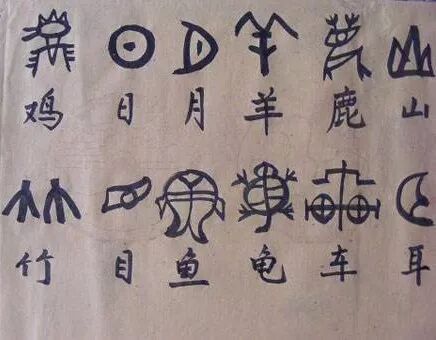 鸡 日 月 羊 鹿 山
竹 目 鱼 龟 车 耳